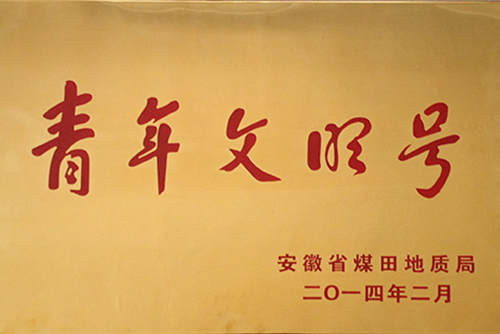 青年文明号
安徽省煤田地质局
二〇一四年二月